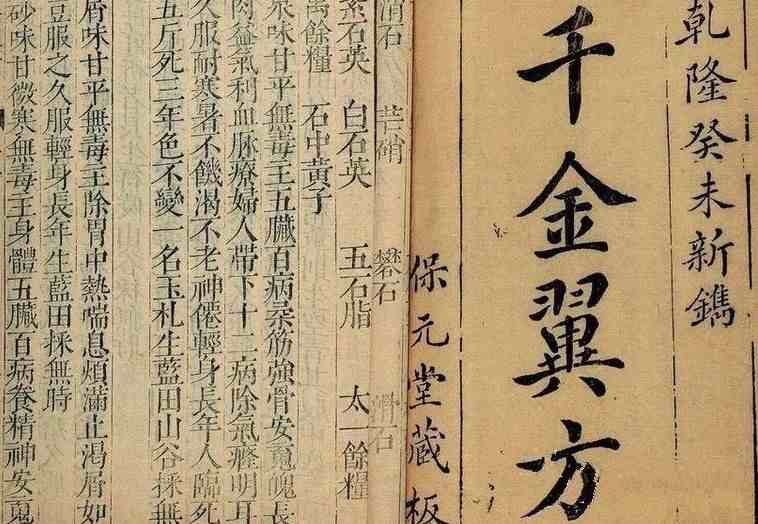 乾隆癸未新鐫
千金翼方
保元堂藏板
滑石 芒硝 礬石
紫石英 白石英 五石脂 太一餘糧
禹餘糧 石中黃子
泉味甘平無毒主五臟百病柔筋強骨安䰟魄長
肉益氣利血脉療婦人帶下十二病除氣癃明耳
久服耐寒暑不饑渴不老神僊輕身長年人臨死
五斤死三年色不變一名玉札生藍田山谷採無
屑味甘平無毒主除胃中熱喘息煩滿止渴屑如
豆服之久服輕身長年生藍田採無時
砂味甘微寒無毒主身體五臟百病養精神安䰟